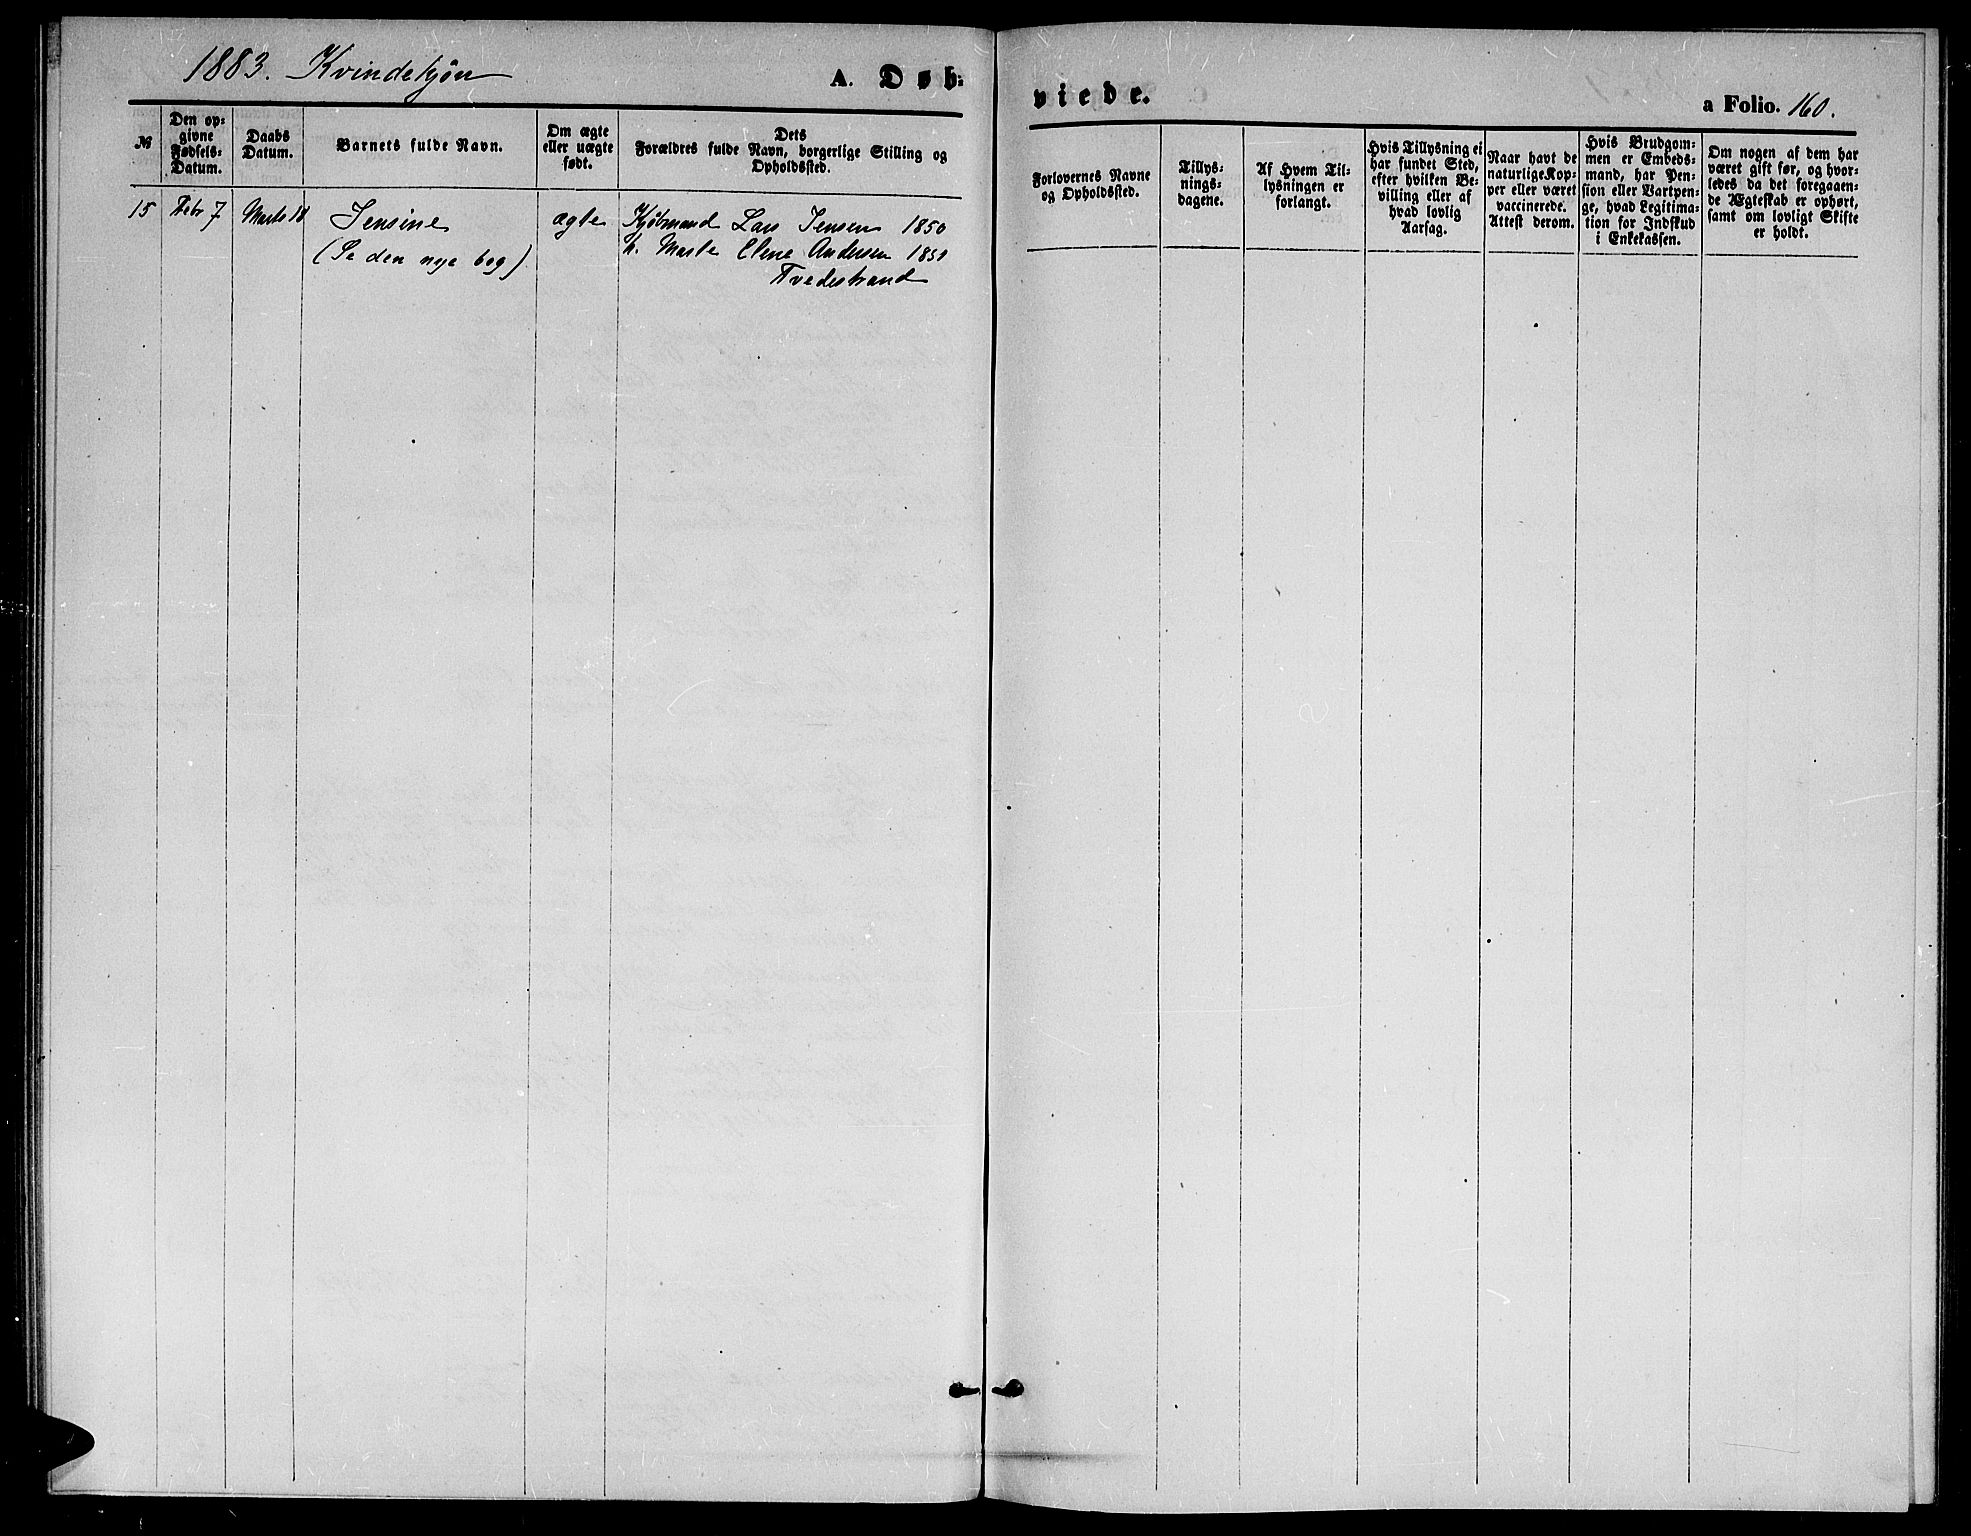 1883. Kvindekjøn
A. Døb-
№
Den op-
givne
Fødsels-
Datum.
Daabs
Datum.
Barnets fulde Navn.
Om ægte
eller uægte
født.
Dets
Forældres fulde Navn, borgerlige Stilling og
Opholdssted.
15 Febr 7 Marts 18 Jensine ægte Kjøbmand Lars Jensen 1850
(Se den nye bog) h. Marte Elene Andersen 1851
Tvedestrand
viede.
a Folio. 160.
Forlovernes Navne
og Opholdssted.
Tillys-
nings-
dagene.
Af Hvem Til-
lysningen er
forlangt.
Hvis Tillysning ei
har fundet Sted,
efter hvilken Be-
villing eller af
hvad lovlig
Aarsag.
Naar havt de
naturlige Kop-
per eller været
vaccinerede.
Attest derom.
Hvis Brudgom-
men er Embeds-
mand, har Pen-
sion eller Vartpen-
ge, hvad Legitima-
tion for Indskud
i Enkekassen.
Om nogen af dem har
været gift før, og hvor-
ledes da det foregaaen-
de Ægteskab er ophørt,
samt om lovligt Skifte
er holdt.